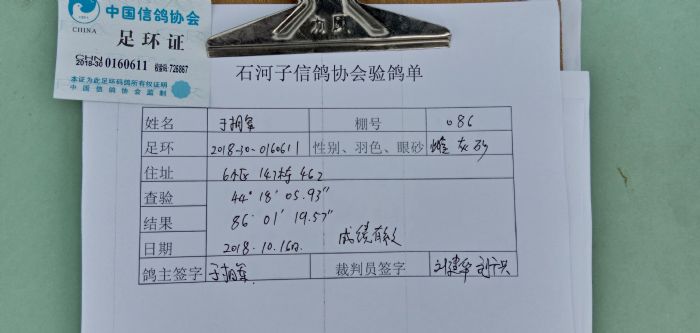 中国信鸽协会
CHINA
足环证
CHN
2018-30 0160611 校验码:726867
本证为此足环码鸽所有权证明
中国信鸽协会监制
石河子信鸽协会验鸽单
姓名 于朝军 棚号 086
足环 2018-30-0160611 性别、羽色、眼砂 雌 灰 砂
住址 6小区 147栋 462
查验 44°18′05.93″
结果 86°01′19.57″
日期 2018.10.16日. 成绩有效
鸽主签字 于朝军 裁判员签字 刘建华